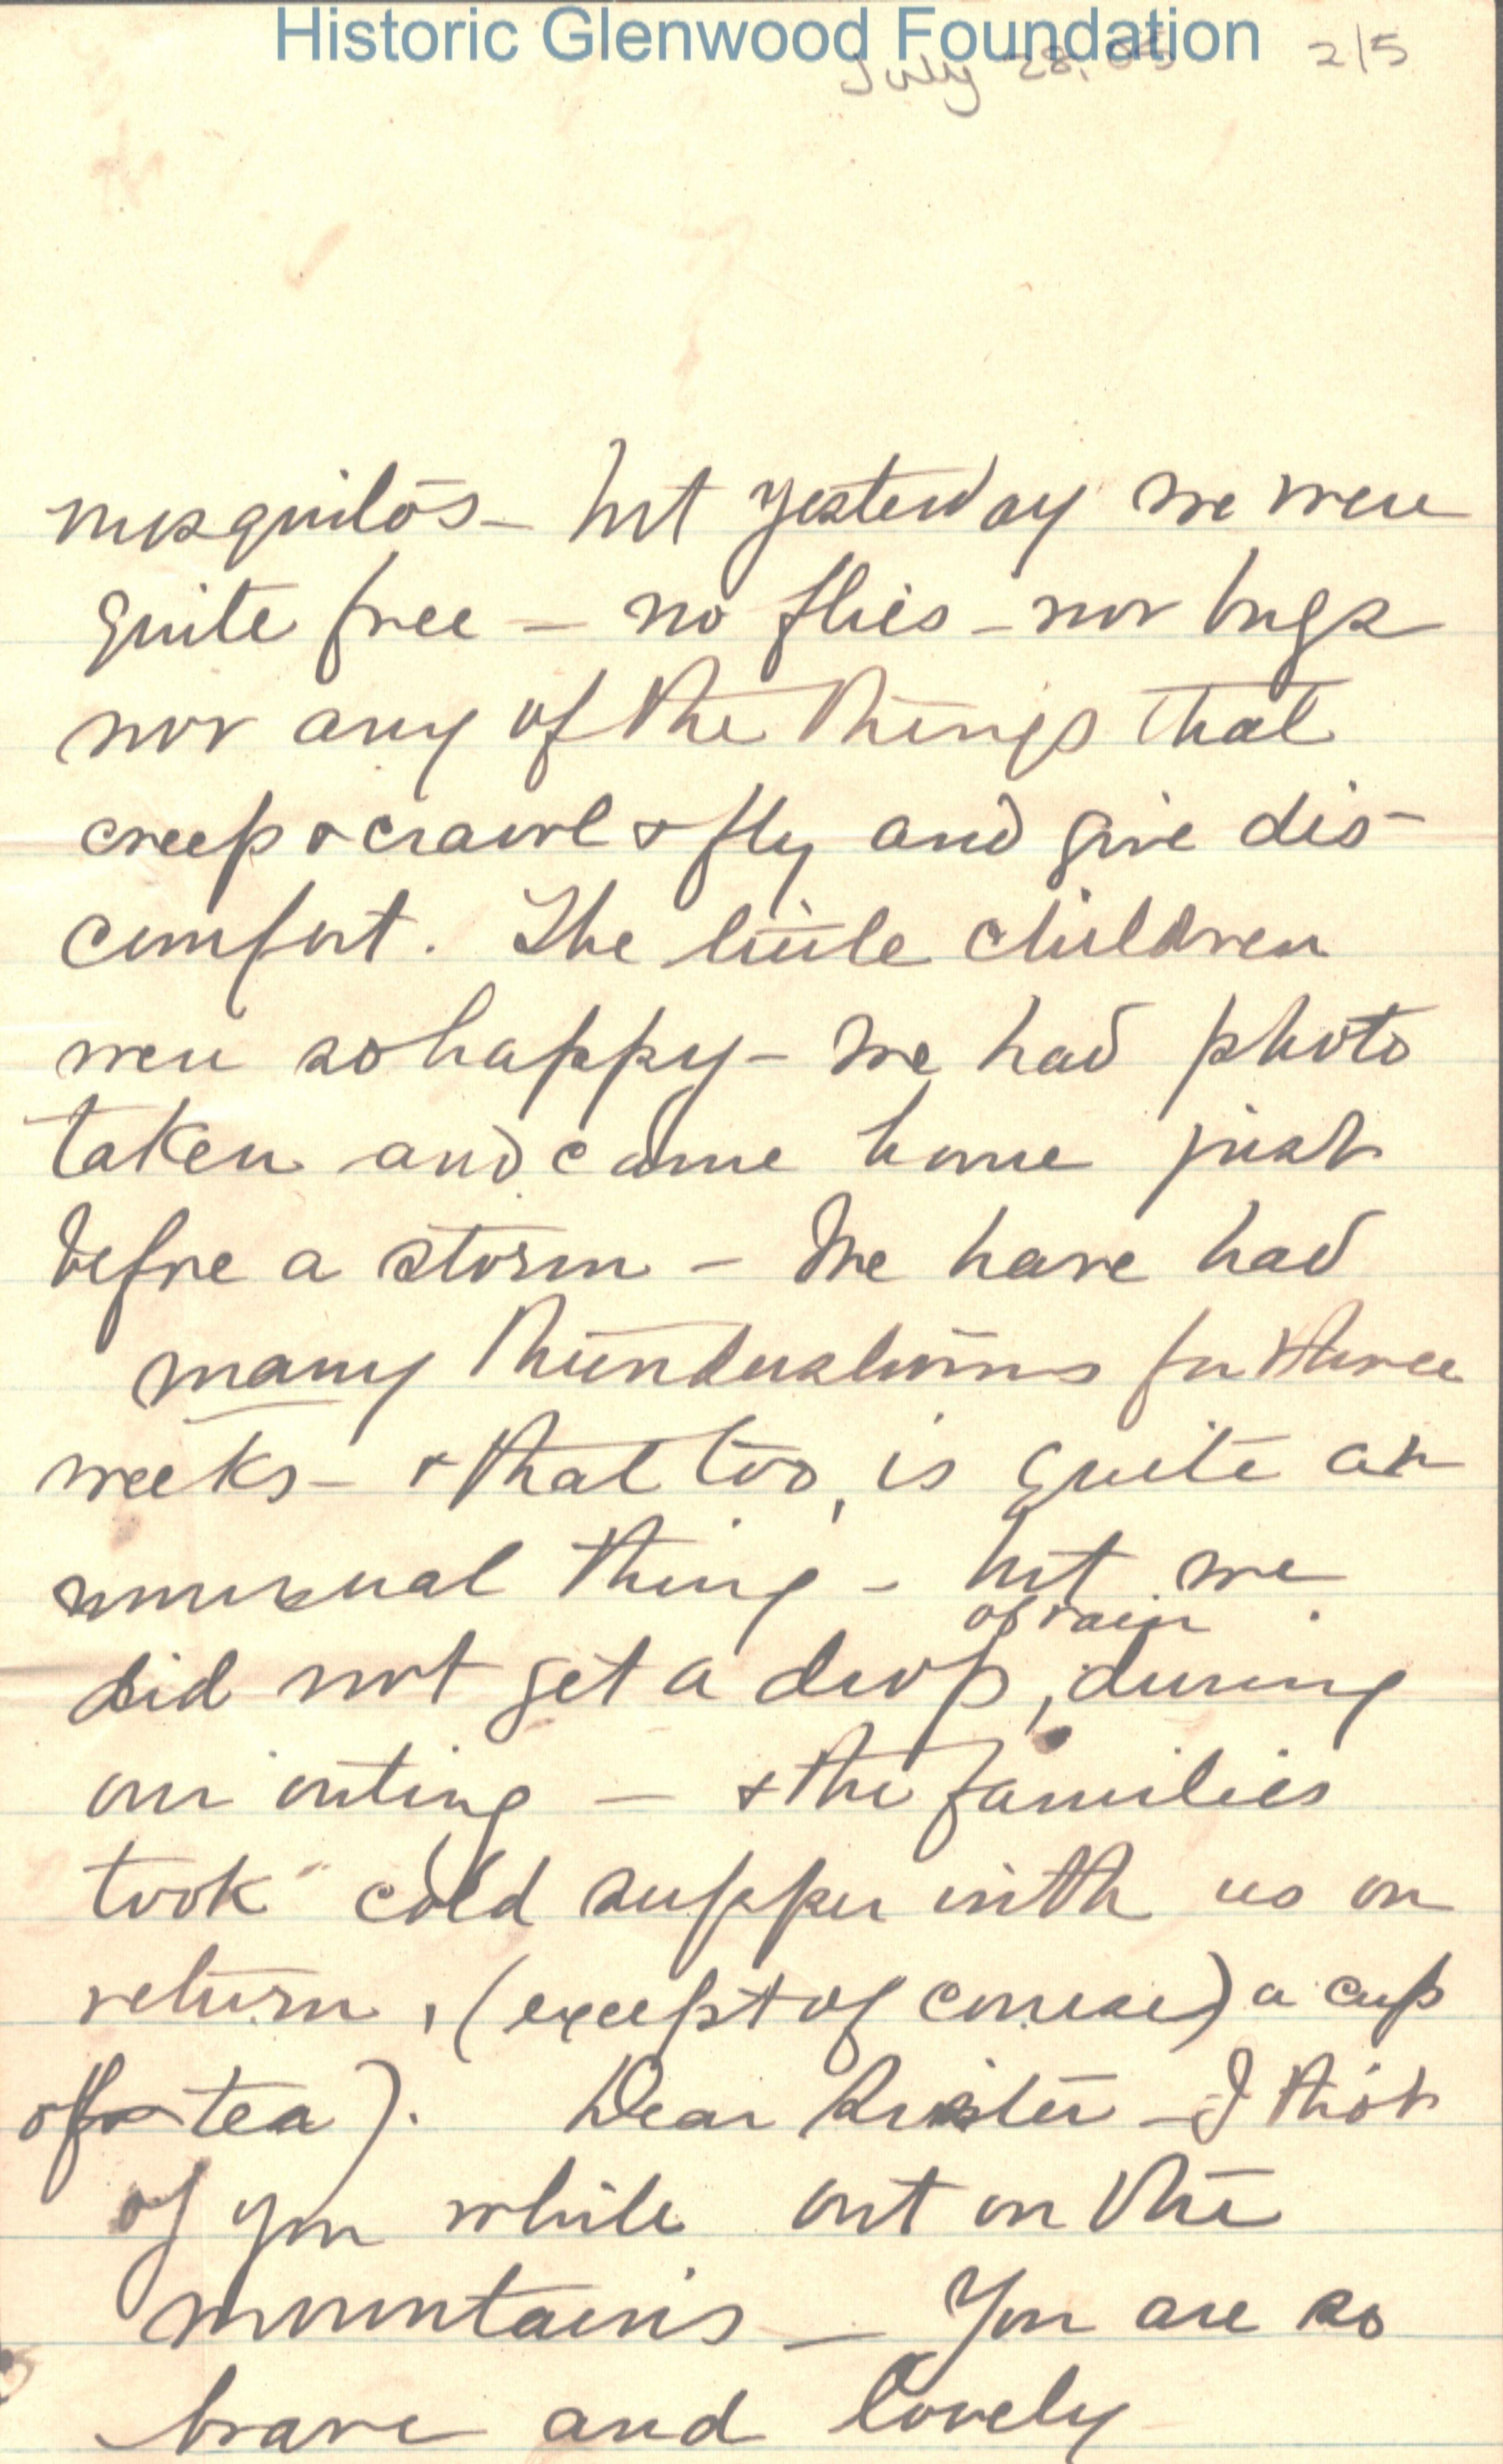 Historic Glenwood Foundation
July 28, 05 2/5
musquitos - but yesterday we were
quite free - no flies - nor bugs
nor any of the things that
creep & crawl & fly and give dis-
comfort. The little children
were so happy - We had photo
taken and came home just
before a storm - We have had
many thunderstorms for three
weeks - & that too, is quite an
unusual thing - but we
of rain
did not get a drop, during
our outing - & the families
took cold supper with us on
return, (except of course) a cup
of tea). Dear Sister - I thot
of you while out on the
mountains - You are so
brave and lovely